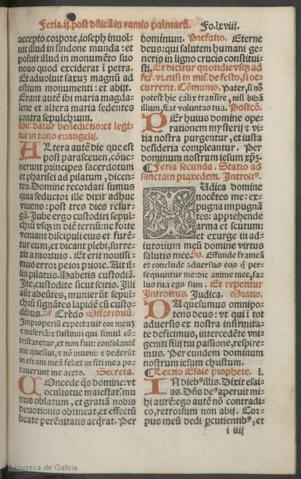 Feria.ij. post dñicã in ramis palmarũ. Fo.lxviij.
accepto corpore, ioseph inuol-
uit illud in sindone munda: et
posuit illud in monumẽto suo
nouo quod exciderat ĩ petra.
Et aduoluit saxuz magnũ ad
ostium monumenti: et abijt.
Erant autẽ ibi maria magda-
lene et altera maria sedentes
contra sepulchrum.
Hic datur benedictio: et legi-
tur in tono euangelij.
Altera autẽ die que est
post parasceuen, cõue-
nerunt principes sacerdotum
et pharisei ad pilatum, dicen-
tes. Domine recordati sumus
quia seductor ille dixit adhuc
viuens: post tres dies resur-
gã. Iube ergo custodiri sepul-
chrũ vsq; in diẽ tertiũ: ne forte
veniant discipuli eius et furẽ-
tur eum, et dicant plebi, surre-
xit a mortuis. Et erit nouissi-
mus error peior priore. Ait il-
lis pilatus. Habetis custodiã.
Ite, custodite sicut scitis. Illi
aũt abeũtes, munierũt sepul-
chrũ, signãtes lapidẽ cũ custo-
dibus. Credo Offertoriũ.
Improperiũ expectauit cor meũ
et miseriã: et sustinui qui simul cõ-
tristaretur, et non fuit: consolantẽ
me quesiui, et nõ inueni: et dederũt
in escam meã fel: et in siti mea po-
tauerunt me aceto. Secreta.
Concede q̃s domine: vt
oculis tue maiestatis mu-
nus oblatum, et gratiã nobis
deuotionis obtineat, et effectũ
beate perẽnitatis acqrat. Per
dominum. Prefatio. Eterne
deus: qui salutem humani ge-
neris in ligno crucis constitui-
sti. Et dicitur quotidie vsq; ad
Cõmunio. Pater, si nõ
potest hic calix transire, nisi bibã
illum, fiat voluntas tua. Postcõ.
Per huius domine ope-
rationem mysterij: et vi-
tia nostra purgentur, et iusta
desideria compleantur. Per
dominum nostrum iesum xp̃m.
Feria secunda. Statio ad
sanctam praxedem. Introit9.
Iudica domine
nocẽtes me: ex-
pugna impugnã-
tes me: apprehende
arma et scutum:
et exurge in ad-
iutorium meũ domine virtus
salutis mee. ps. Effunde frameã
et conclude aduersus eos q̃ per-
sequuntur me: dic anime mee, sa-
lus tua ego sum. Et repetitur
Introitus. Iudica. Oratio.
Da quesumus omnipo-
tens deus: vt qui ĩ tot
aduersis ex nostra infirmita-
te deficimus, intercedẽte vni-
geniti filij tui passione, respire-
mus. Per eundem dominum
nostrum iesum christum.
Lectio Esaie prophete. l.
In dieb9 illis. Dixit esai-
as. Dñs de9 aperuit mi-
hi aurẽ: ego autẽ nõ contradi-
co, retrorsum non abij. Cor-
pus meũ dedi percutientib9, et
i iiij
Biblioteca de Galicia